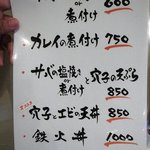 or
煮付け 600
カレイの煮付け 750
サバの塩焼き と 穴子の天ぷら
or
煮付け 850
穴子とエビの天丼 850
鉄火丼 1000